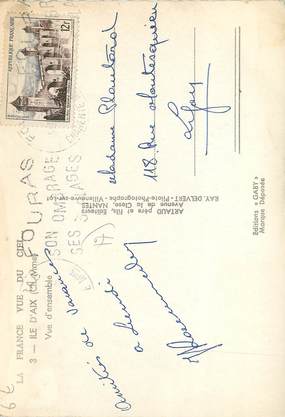 LA FRANCE VUE DU CIEL
3 - ILE D'AIX (Ch.-Mme)
Vue d'ensemble
REPUBLIQUE FRANÇAISE
12F
FOURAS
SON OMBRAGE
SES
Amitiés de vacances
à demain
ARTAUD père et fils, Éditeurs
Avenue de la Gare, NANTES
RAY. DELVERT - Pilote-Photographe - Villeneuve-sur-Lot
Editions « GABY »
Marque Déposée
Madame Plantard
118 Rue Montesquieu
Lyon